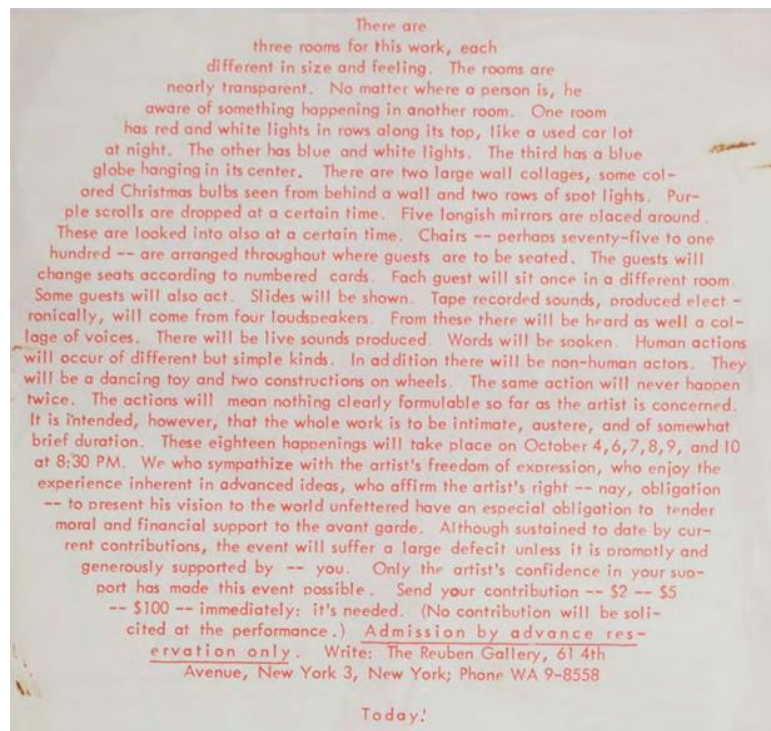 There are
three rooms for this work, each
different in size and feeling. The rooms are
nearly transparent. No matter where a person is, he
aware of something happening in another room. One room
has red and white lights in rows along its top, like a used car lot
at night. The other has blue and white lights. The third has a blue
globe hanging in its center. There are two large wall collages, some col-
ored Christmas bulbs seen from behind a wall and two rows of spot lights. Pur-
ple scrolls are dropped at a certain time. Five longish mirrors are placed around.
These are looked into also at a certain time. Chairs -- perhaps seventy-five to one
hundred -- are arranged throughout where guests are to be seated. The guests will
change seats according to numbered cards. Each guest will sit once in a different room.
Some guests will also act. Slides will be shown. Tape recorded sounds, produced elect -
ronically, will come from four loudspeakers. From these there will be heard as well a col-
lage of voices. There will be live sounds produced. Words will be spoken. Human actions
will occur of different but simple kinds. In addition there will be non-human actors. They
will be a dancing toy and two constructions on wheels. The same action will never happen
twice. The actions will mean nothing clearly formulable so far as the artist is concerned.
It is intended, however, that the whole work is to be intimate, austere, and of somewhat
brief duration. These eighteen happenings will take place on October 4,6,7,8,9, and 10
at 8:30 PM. We who sympathize with the artist's freedom of expression, who enjoy the
experience inherent in advanced ideas, who affirm the artist's right -- nay, obligation
-- to present his vision to the world unfettered have an especial obligation to tender
moral and financial support to the avant garde. Although sustained to date by cur-
rent contributions, the event will suffer a large defecit unless it is promptly and
generously supported by -- you. Only the artist's confidence in your sup-
port has made this event possible. Send your contribution -- $2 -- $5
-- $100 -- immediately: it's needed. (No contribution will be soli-
cited at the performance.) Admission by advance res-
ervation only. Write: The Reuben Gallery, 61 4th
Avenue, New York 3, New York; Phone WA 9-8558
Today!